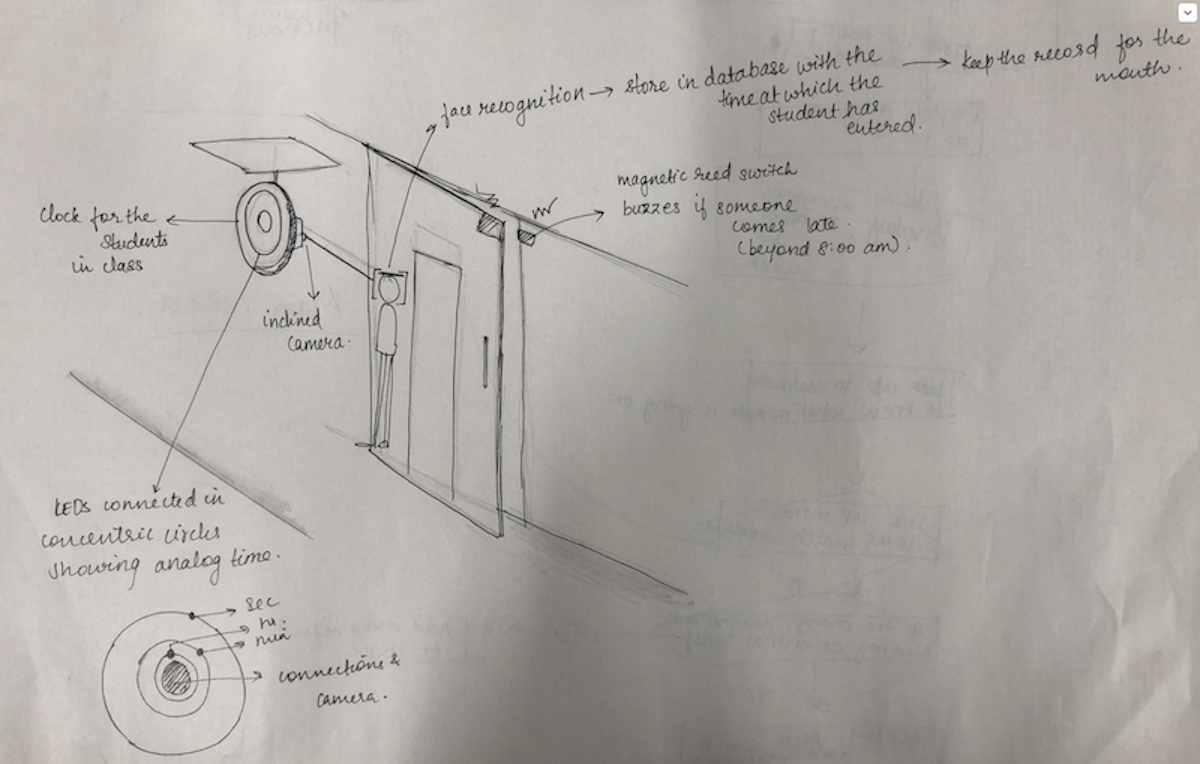 face recognition → store in database with the
time at which the
student has
entered.
→ keep the record for the
month.
magnetic reed switch
buzzes if someone
comes late.
(beyond 8:00 am).
Clock for the
students
in class
inclined
camera.
LEDs connected in
concentric circles
showing analog time.
sec
hr.
min
connections &
camera.